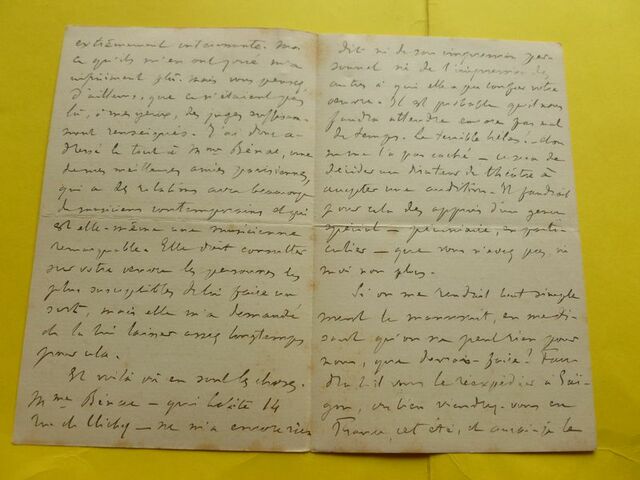 extrêmement intéressante. Moi
ce qu'ils m'en ont joué m'a
infiniment plu mais vous pensez
d'ailleurs, que ce n'étaient pas
là, à mes yeux, des juges suffisam-
ment renseignés. J'ai donc a-
dressé le tout à Mme Bénac, une
de mes meilleures amies parisiennes,
qui a des relations avec beaucoup
de musiciens contemporains et qui
est elle-même une musicienne
remarquable. Elle doit consulter
sur votre oeuvre les personnes les
plus susceptibles de lui faire un
sort, mais elle m'a demandé
de la lui laisser assez longtemps
pour cela.
Et voilà où en sont les choses.
Mme Bénac — qui habite 14
rue de Clichy — ne m'a encore rien
dit ni de son impression per-
sonnel ni de l'impression des
autres à qui elle a pu confier votre
oeuvre. Il est probable qu'il nous
faudra attendre encore pas mal
de temps. Le terrible hélas! — on
ne me l'a pas caché — ce sera de
décider un directeur de théâtre à
accepter une audition. Il faudrait
pour cela des appuis d'un genre
spécial — pécuniaire, en parti-
culier — que vous n'avez pas ni
moi non plus.
Si on me rendait tout simple
ment le manuscrit, en me di-
sant qu'on ne peut rien pour
nous, que devrais-je faire? Fau-
dra-t-il vous le réexpédier à Saï-
gon, ou bien viendrez-vous en
France, cet été, et aurai-je le